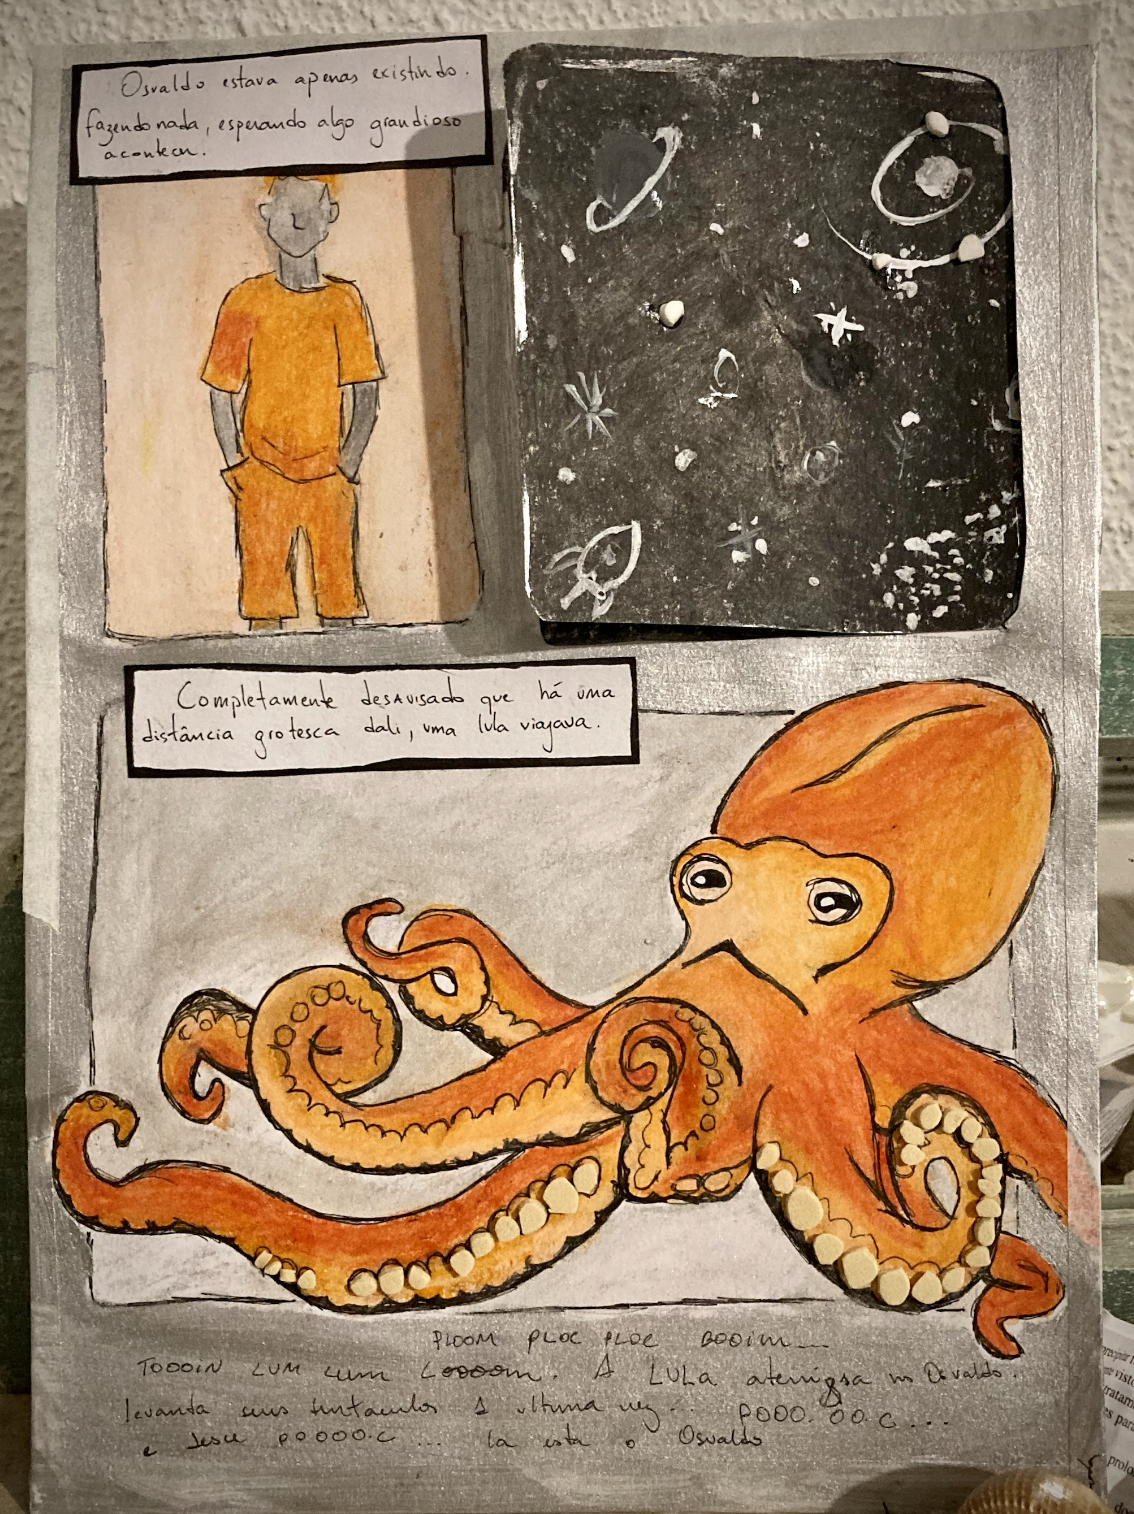 Osvaldo estava apenas existindo.
fazendo nada, esperando algo grandioso
acontecer.
Completamente desavisado que há uma
distância grotesca dali, uma lula viajava.
PLOOM PLOC PLOC BOOIM...
TOOOIN LUM LUM LOOOOM. A LULA aterrissa no Osvaldo.
levanta seus tentaculos 1 ultima vez... POOO.OO.C...
e desce POOOO.C... la esta o Osvaldo